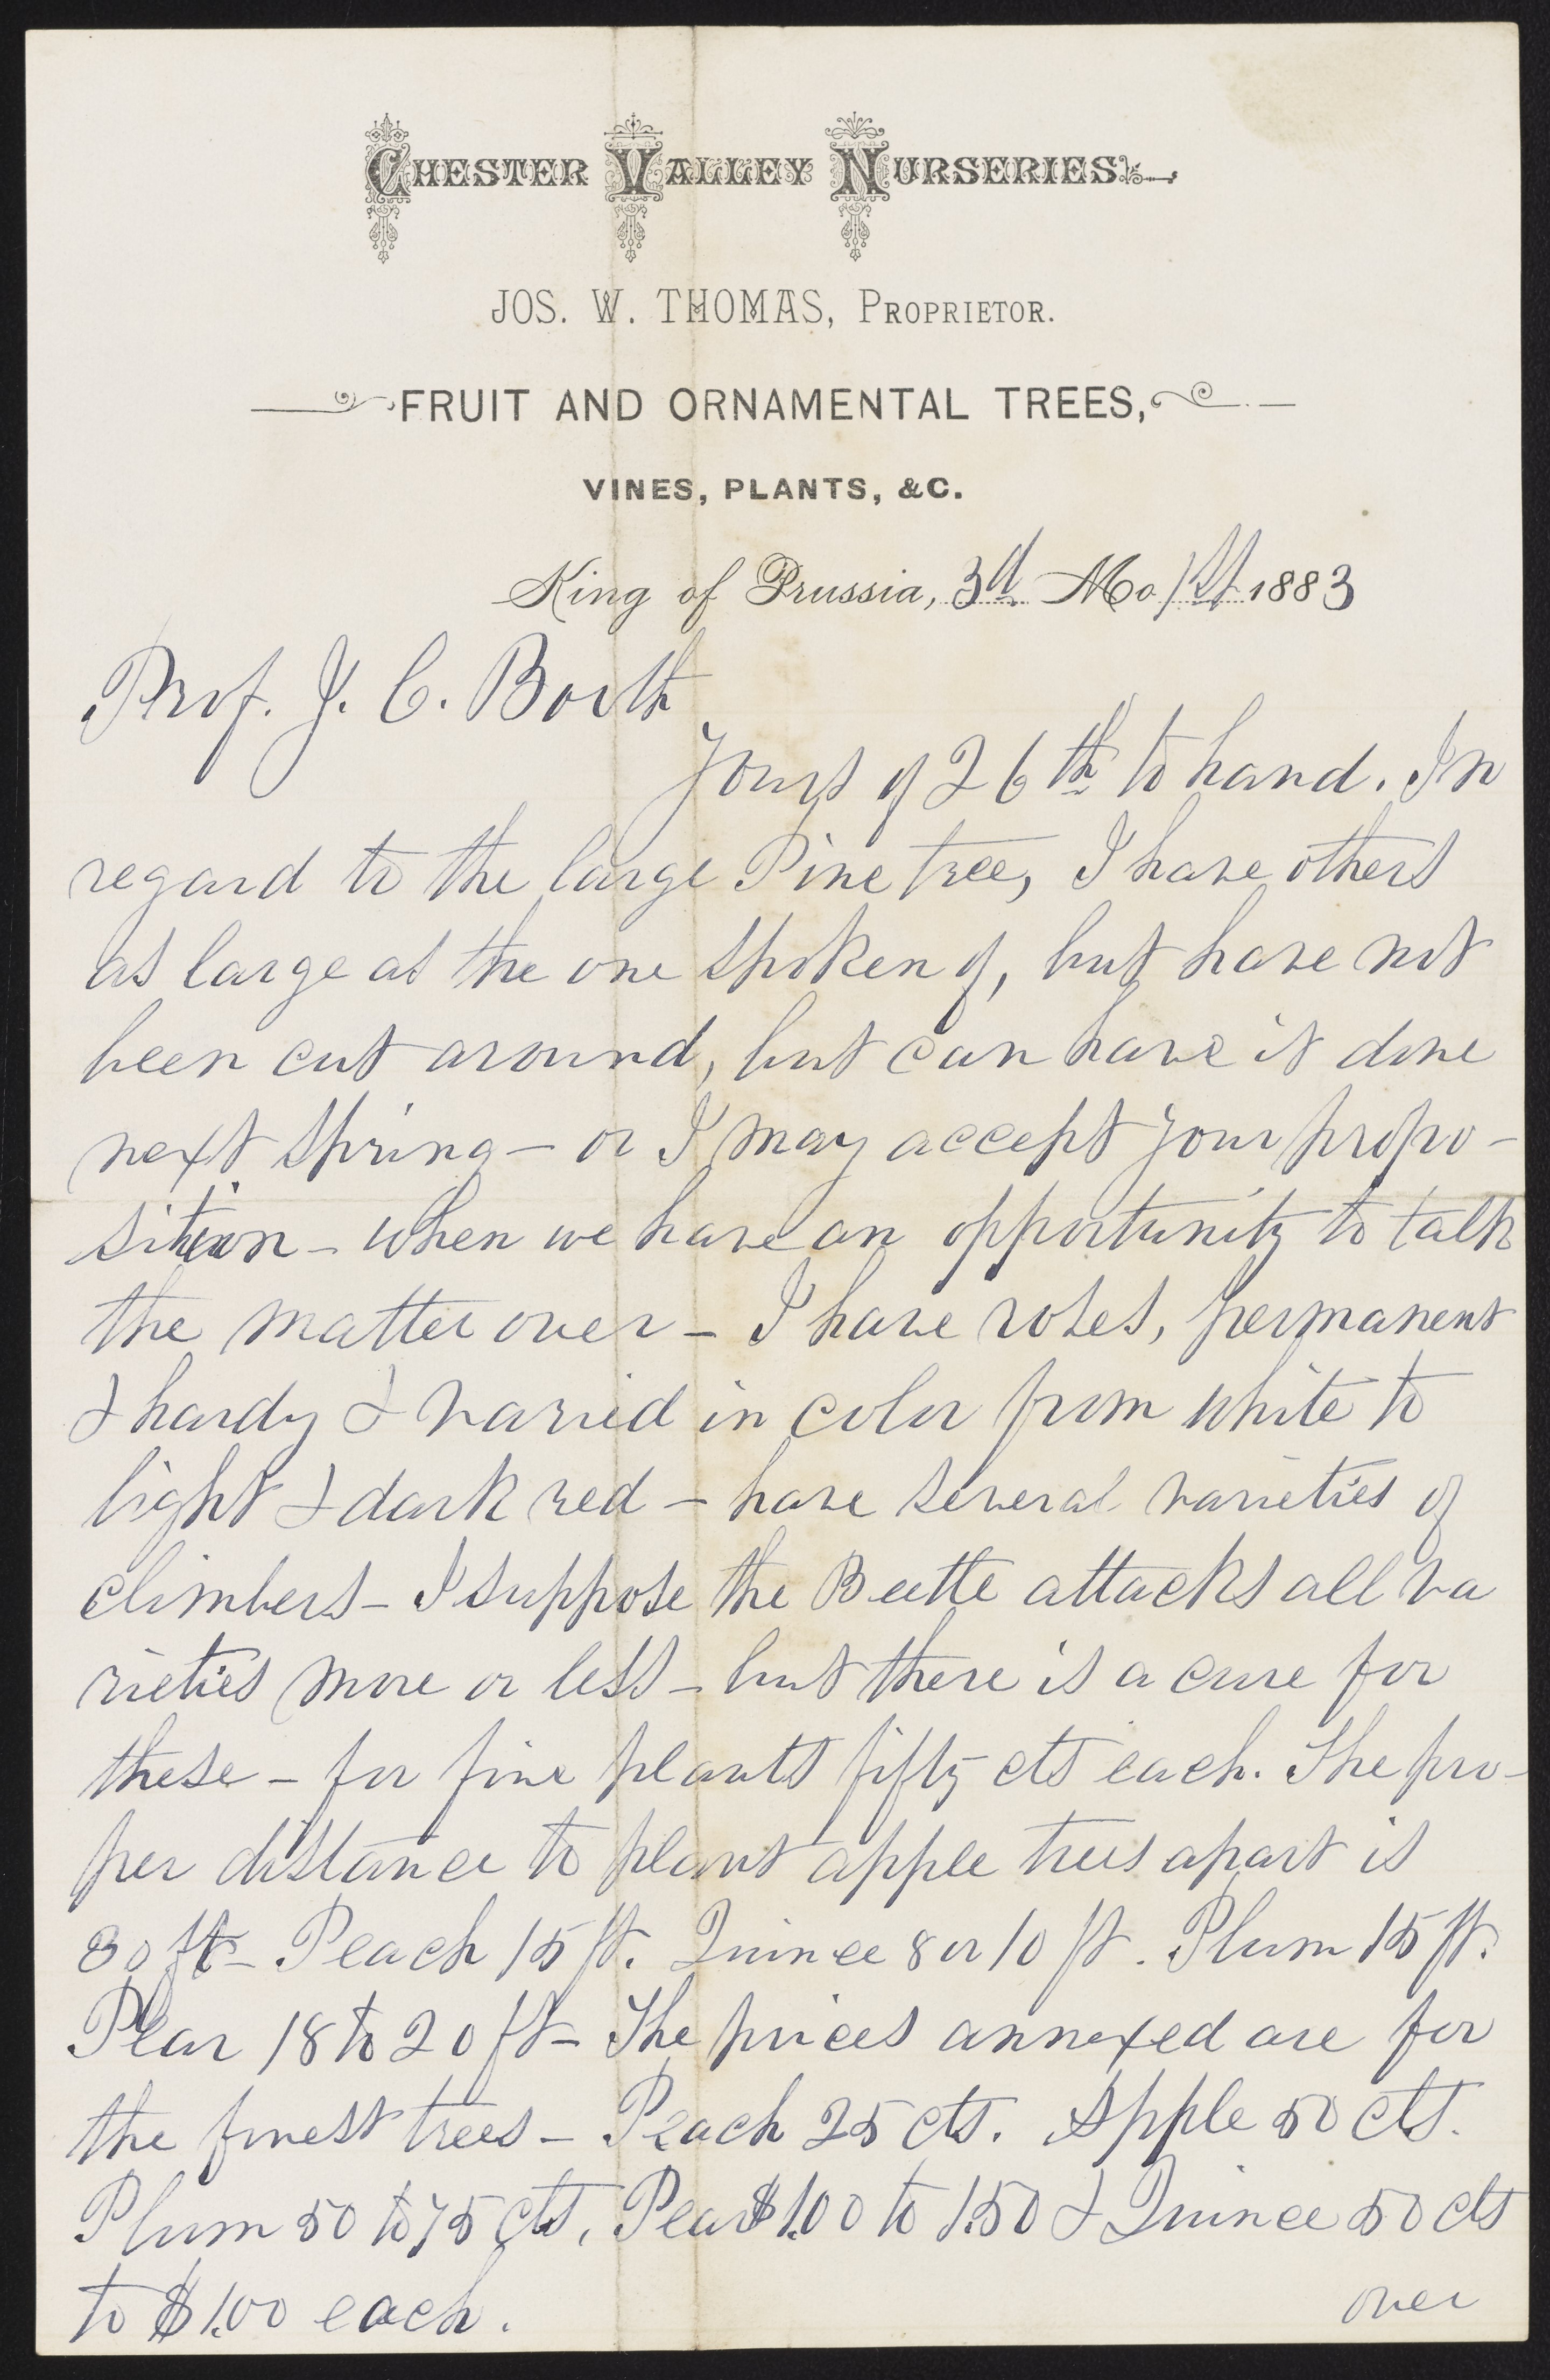 CHESTER VALLEY NURSERIES
JOS. W. THOMAS, PROPRIETOR.
FRUIT AND ORNAMENTAL TREES,
VINES, PLANTS, &C.
King of Prussia, 3d Mo 1st 1883
Prof. J. C. Booth
Yours of 26th to hand. In
regard to the large Pine tree, I have others
as large as the one spoken of, but have not
been cut around, but can have it done
next Spring – or I may accept your propo-
sition – when we have an opportunity to talk
the matter over – I have roses, permanent
& hardy & varied in color from white to
light & dark red – have several varieties of
climbers – I suppose the Beetle attacks all va
rieties more or less – but there is a cure for
these – for fine plants fifty cts each. The pro-
per distance to plant apple trees apart is
30 ft – Peach 15 ft. Quince 8 or 10 ft. Plum 15 ft.
Pear 18 to 20 ft – The prices annexed are for
the finest trees – Peach 25 cts. Apple 50 cts.
Plum 50 to 75 cts, Pear $1.00 to 1.50 & Quince 50 cts
to $1.00 each.
over